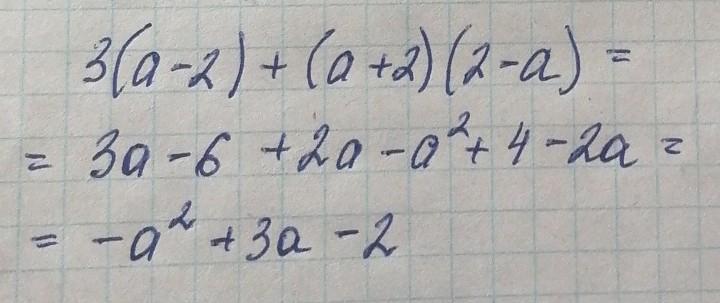 3(a-2) + (a+2)(2-a) =
= 3a - 6 + 2a - a² + 4 - 2a =
= -a² + 3a - 2